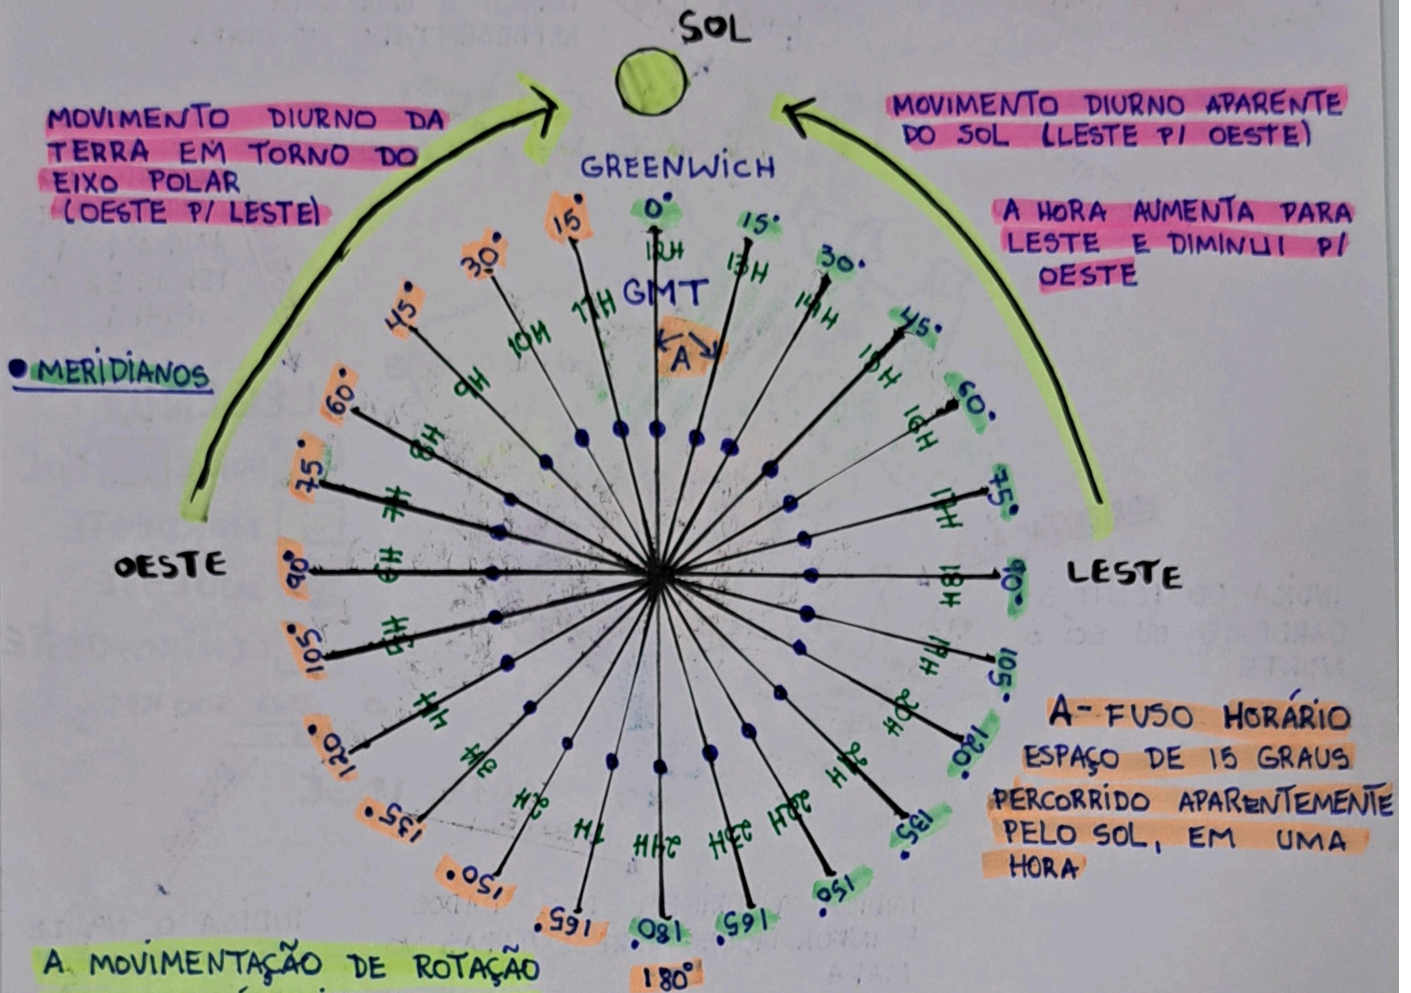 SOL
MOVIMENTO DIURNO DA
TERRA EM TORNO DO
EIXO POLAR
(OESTE P/ LESTE)
MOVIMENTO DIURNO APARENTE
DO SOL (LESTE P/ OESTE)
A HORA AUMENTA PARA
LESTE E DIMINUI P/
OESTE
GREENWICH
0°
12H
GMT
A
15°
13H
30°
14H
45°
15H
60°
16H
75°
17H
90°
18H
105°
19H
120°
20H
135°
21H
150°
22H
165°
23H
180°
24H
180°
165°
1H
150°
2H
135°
3H
120°
4H
105°
5H
90°
6H
75°
7H
60°
8H
45°
9H
30°
10H
15°
11H
• MERIDIANOS
OESTE
LESTE
A- FUSO HORÁRIO
ESPAÇO DE 15 GRAUS
PERCORRIDO APARENTEMENTE
PELO SOL, EM UMA
HORA
A MOVIMENTAÇÃO DE ROTAÇÃO